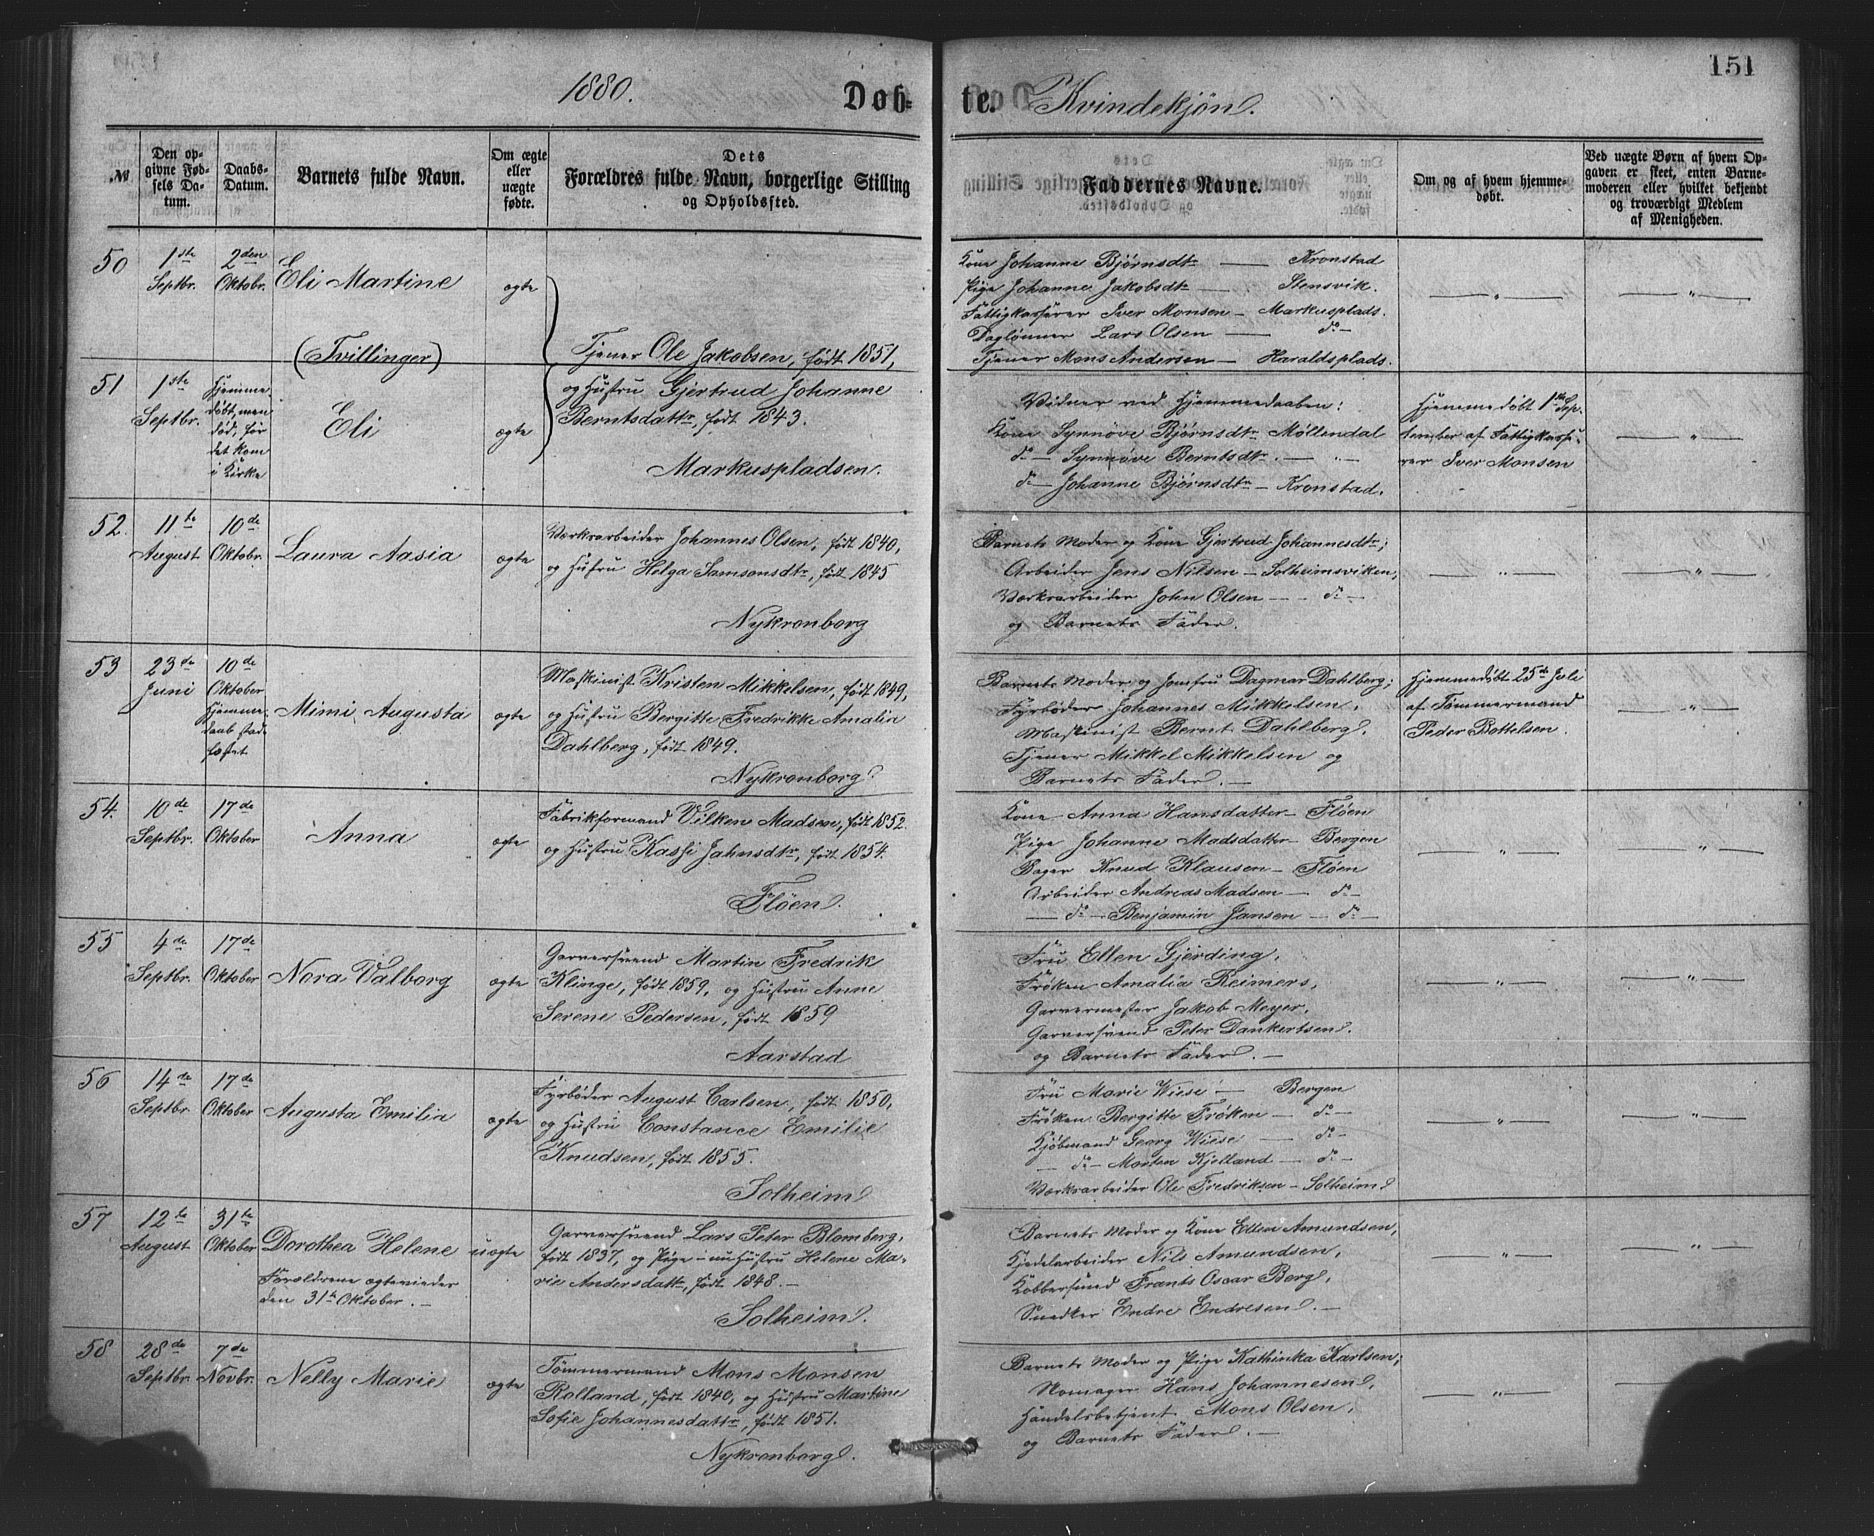 1880.
Døb-
te.
Kvindekjøn.
151
№
Den op-
givne Fød-
sels Da-
tum.
Daabs-
Datum.
Barnets fulde Navn.
Om ægte
eller
uægte
fødte.
Dets
Forældres fulde Navn, borgerlige Stilling
og Opholdssted.
Faddernes Navne.
Om og af hvem hjemme-
døbt.
Ved uægte Børn af hvem Op-
gaven er skeet, enten Barne-
moderen eller hvilket bekjendt
og troværdigt Medlem
af Menigheden.
50
1ste
Septbr.
2den
Oktobr.
Eli Martine
(Tvillinger)
ægte
Tjener Ole Jakobsen, født 1851,
Kone Johanne Bjørnsdtr — Kronstad
Pige Johanne Jakobsdtr — Stensvik.
Fattigkasserer Iver Monsen — Markusplads.
Daglønner Lars Olsen — do —
Tjener Mons Andersen — Haraldsplads.
— " —
— " —
51
1ste
Septbr.
Hjemme-
døbt, men
død, før
det kom
i Kirke
Eli
ægte
og Hustru Gjertrud Johanne
Berntsdattr, født 1843.
Markuspladsen.
Vidner ved Hjemmedaaben:
Kone Synnøve Bjørnsdtr Møllendal
do — Synnøve Berntsdtr. — " —
do — Johanne Bjørnsdtr — Kronstad.
Hjemmedøbt 1ste Sep-
tember af Fattigkasse-
rer Iver Monsen
— " —
52.
11te
August
10de
Oktobr.
Laura Aasia
ægte
Værkarbeider Johannes Olsen, født 1840,
og Hustru Helga Samsonsdtr, født 1845
Nykronborg
Barnets Moder og Kone Gjertrud Johannesdtr;
Arbeider Jens Nilsen — Solheimsviken,
Værkarbeider John Olsen — do —
og Barnets Fader.
— " —
— " —
53
23de
Juni
10de
Oktober
Hjemme-
daab stad-
fæstet
Mimi Augusta
ægte
Maskinist Kristen Mikkelsen, født 1849,
og Hustru Bergitte Fredrikke Amalia
Dahlberg, født 1849.
Nykronborg
Barnets Moder og Jomfru Dagmar Dahlberg;
Fyrbøder Johannes Mikkelsen,
Maskinist Bernt Dahlberg,
Tjener Mikkel Mikkelsen og
Barnets Fader. —
Hjemmedøbt 25de Juli
af Tømmermand
Peder Bottelsen.
— " —
54.
10de
Septbr.
17de
Oktober
Anna
ægte
Fabrikformand Vilken Madsen, født 1852.
og Hustru Kassi Jahnsdtr, født 1854.
Fløen.
Kone Anna Hansdatter — Fløen
Pige Johanne Madsdatter — Bergen
Bager Knud Klausen — Fløen
Arbeider Andreas Madsen — do —
— do — Benjamin Jansen — do —
— " —
— " —
55
4de
Septbr.
17de
Oktober
Nora Valborg
ægte
Garversvend Martin Fredrik
Klinge, født 1859, og Hustru Anne
Serene Pedersen, født 1859
Aarstad
Fru Ellen Gjerding,
Frøken Amalia Reimers,
Garvermester Jakob Meyer,
Garversvend Peter Dankertsen.
og Barnets Fader. —
— " —
— " —
56
14de
Septbr.
17de
Oktober
Augusta Emilia
ægte
Fyrbøder August Carlsen, født 1850,
og Hustru Constance Emilie
Knudsen, født 1855.
Solheim
Fru Marie Wiese — Bergen
Frøken Bergitte Frøken — do —
Kjøbmand Georg Wiese — do —
— do — Morten Kjelland — do —
Værkarbeider Ole Fredriksen — Solheim
— " —
— " —
57
12te
August
31te
Oktober
Dorothea Helene
Forældrene ægteviedes
den 31te Oktober. —
uægte
Garversvend Lars Peter Blomberg,
født 1837, og Pige — nu Hustru Helene Ma-
rie Andersdattr, født 1848. —
Solheim.
Barnets Moder og Kone Ellen Amundsen,
Kjedelarbeider Nils Amundsen,
Kobbersmed Frants Oscar Berg,
Snedker Endre Endresen. —
— " —
— " —
58
28de
Septbr.
7de
Novbr.
Nelly Marie
ægte
Tømmermand Mons Monsen
Rolland, født 1840, og Hustru Martine
Sofie Johannesdattr, født 1851.
Nykronborg.
Barnets Moder og Pige Kathinka Karlsen;
Nomager Hans Johannesen,
Handelsbetjent Mons Olsen,
og Barnets Fader. —
— " —